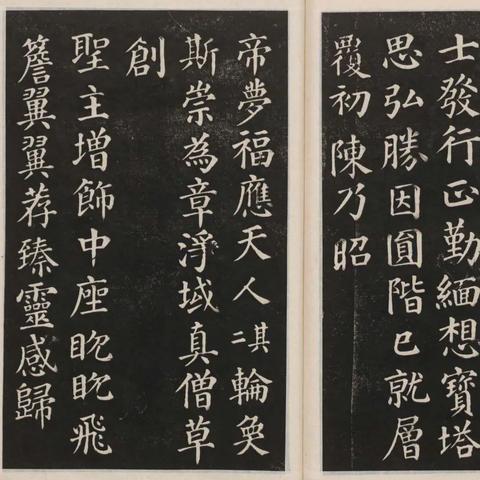 士發行正勤緬想寶塔
思弘勝因圓階已就層
覆初陳乃昭
帝夢福應天人其二輪奐
斯崇為章淨域真僧草
創
聖主增飾中座眈眈飛
簷翼翼荐臻靈感歸